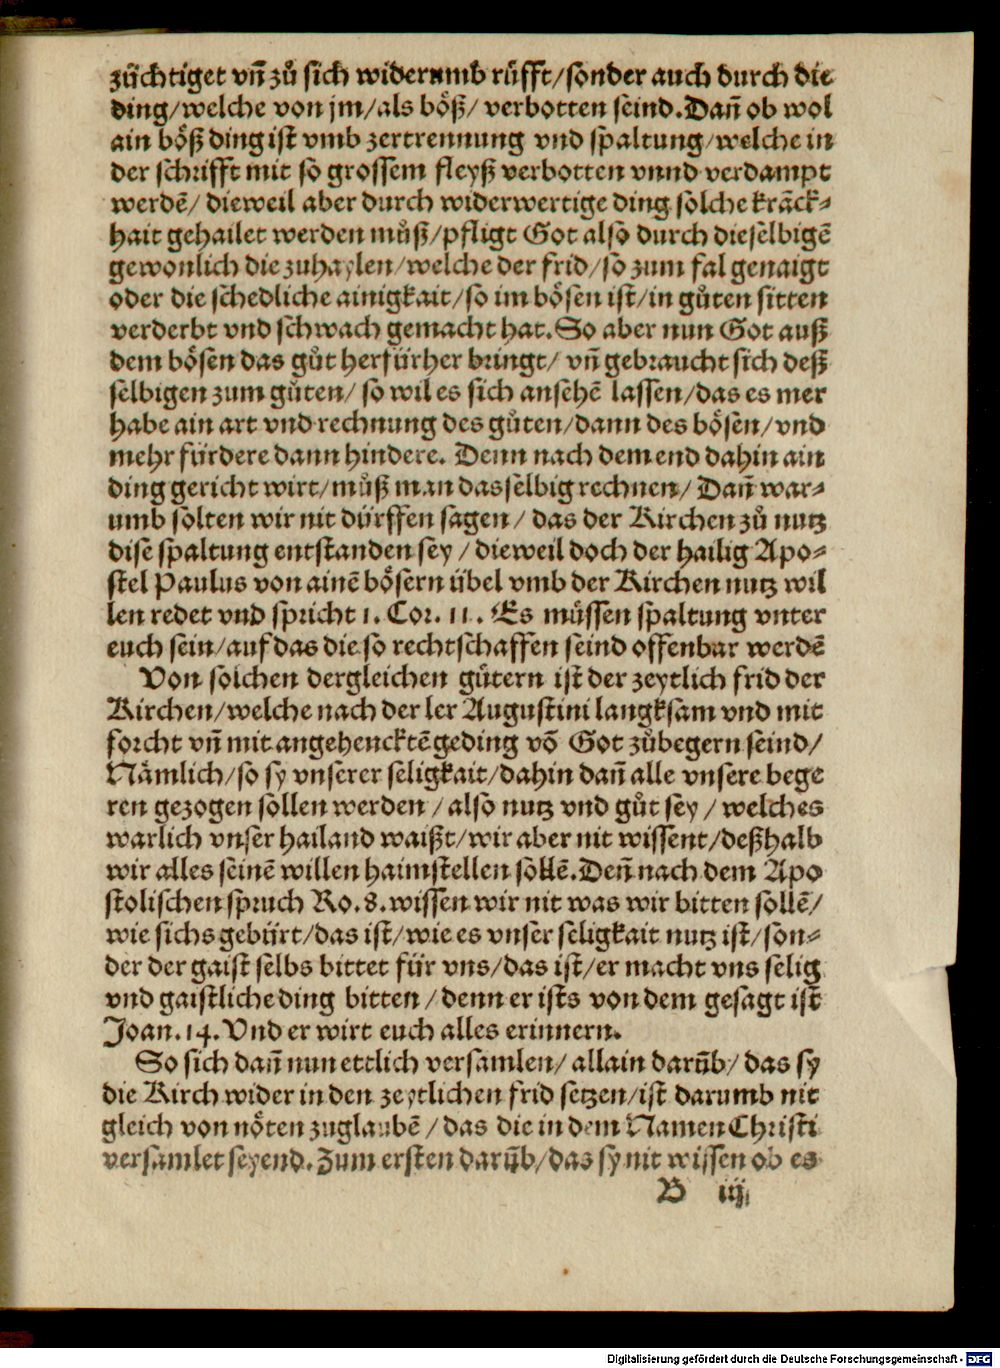 züchtiget vñ zů sich widerumb růfft/sonder auch durch die
ding/welche von jm/als böß/ verbotten seind. Dañ ob wol
ain böß ding ist vmb zertrennung vnd spaltung/welche in
der schrifft mit so grossem fleyß verbotten vnnd verdampt
werdẽ/ dieweil aber durch widerwertige ding solche krãck⸗
hait gehailet werden můß/pfligt Got also durch dieselbigẽ
gewonlich die zuhaylen/welche der frid/so zum fal genaigt
oder die schedliche ainigkait/so im bösen ist/in gůten sitten
verderbt vnd schwach gemacht hat. So aber nun Got auß
dem bösen das gůt herfürher bringt/ vñ gebraucht sich deß
selbigen zum gůten/ so wil es sich ansehẽ lassen/das es mer
habe ain art vnd rechnung des gůten/dann des bösen/vnd
mehr fürdere dann hindere. Denn nach dem end dahin ain
ding gericht wirt/můß man dasselbig rechnen/ Dañ war⸗
umb solten wir nit dürffen sagen/ das der Kirchen zů nutz
dise spaltung entstanden sey/ dieweil doch der hailig Apo⸗
stel Paulus von ainẽ bösern übel vmb der Kirchen nutz wil
len redet vnd spricht 1. Cor. 11. Es müssen spaltung vnter
euch sein/auf das die so rechtschaffen seind offenbar werdẽ
Von solchen dergleichen gütern ist der zeytlich frid der
Kirchen/welche nach der ler Augustini langksam vnd mit
forcht vñ mit angehencktẽ geding võ Got zůbegern seind/
Nämlich/so sy vnserer seligkait/dahin dañ alle vnsere bege
ren gezogen sollen werden/ also nutz vnd gůt sey/ welches
warlich vnser hailand waißt/wir aber nit wissent/deßhalb
wir alles seinẽ willen haimstellen sollẽ. Deñ nach dem Apo
stolischen spruch Ro. 8. wissen wir nit was wir bitten sollẽ/
wie sichs gebürt/das ist/wie es vnser seligkait nutz ist/son⸗
der der gaist selbs bittet für vns/das ist/er macht vns selig
vnd gaistliche ding bitten/denn er ists von dem gesagt ist
Joan. 14. Vnd er wirt euch alles erinnern.
So sich dañ nun ettlich versamlen/ allain darũb/ das sy
die Kirch wider in den zeytlichen frid setzen/ist darumb nit
gleich von nöten zuglaubẽ/ das die in dem Namen Christi
versamlet seyend. Zum ersten darũb/das sy nit wissen ob es
B iij
Digitalisierung gefördert durch die Deutsche Forschungsgemeinschaft - DFG